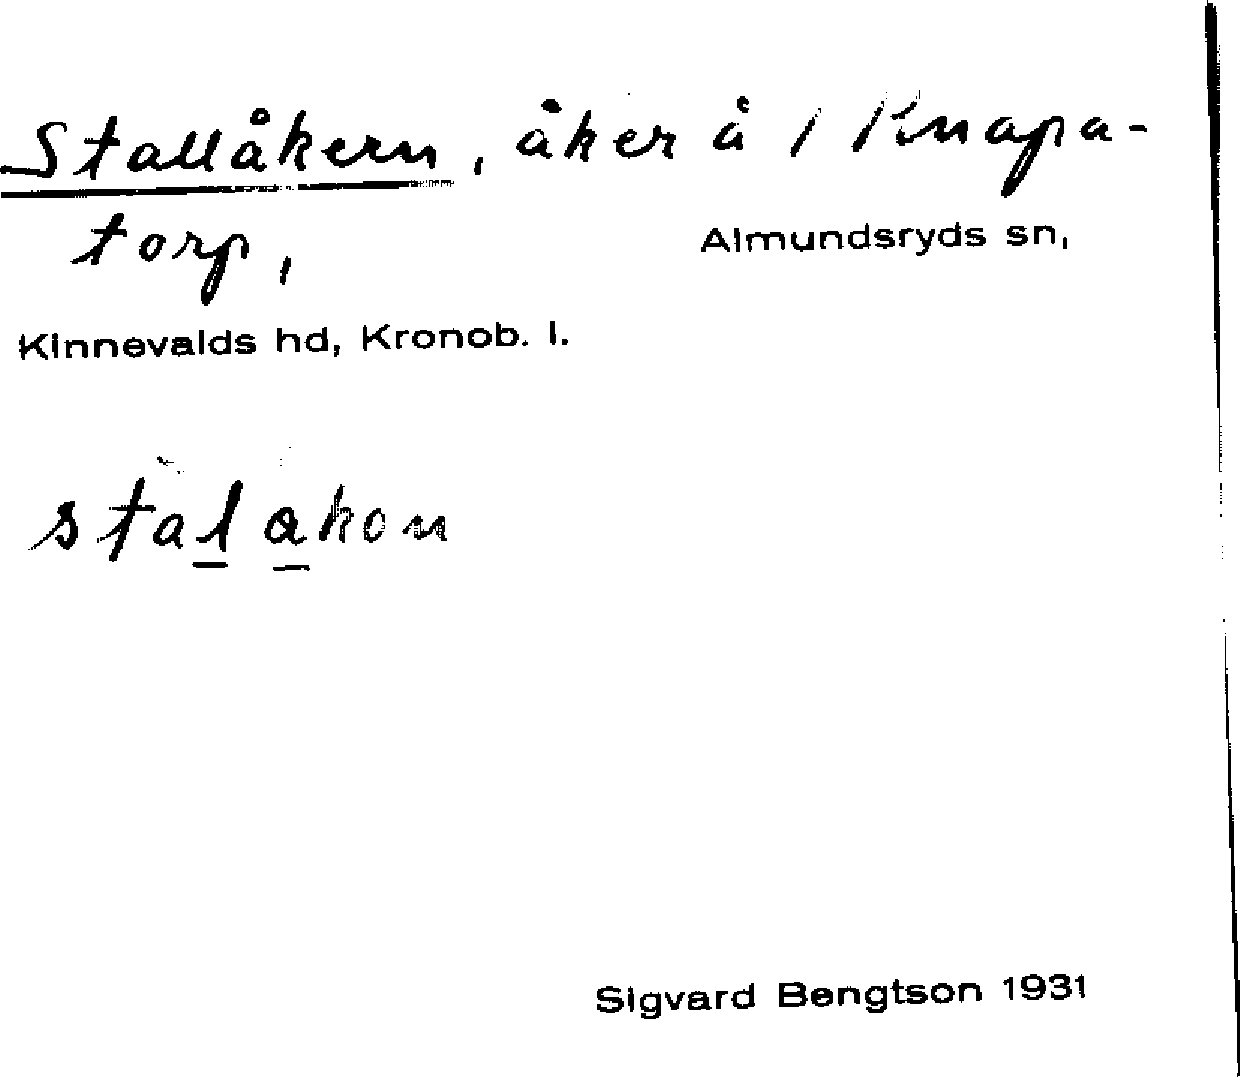 Stallåkern, åker å / Knapa-
torp, Almundsryds sn,
Kinnevalds hd, Kronob. l.
stalakon
Sigvard Bengtson 1931